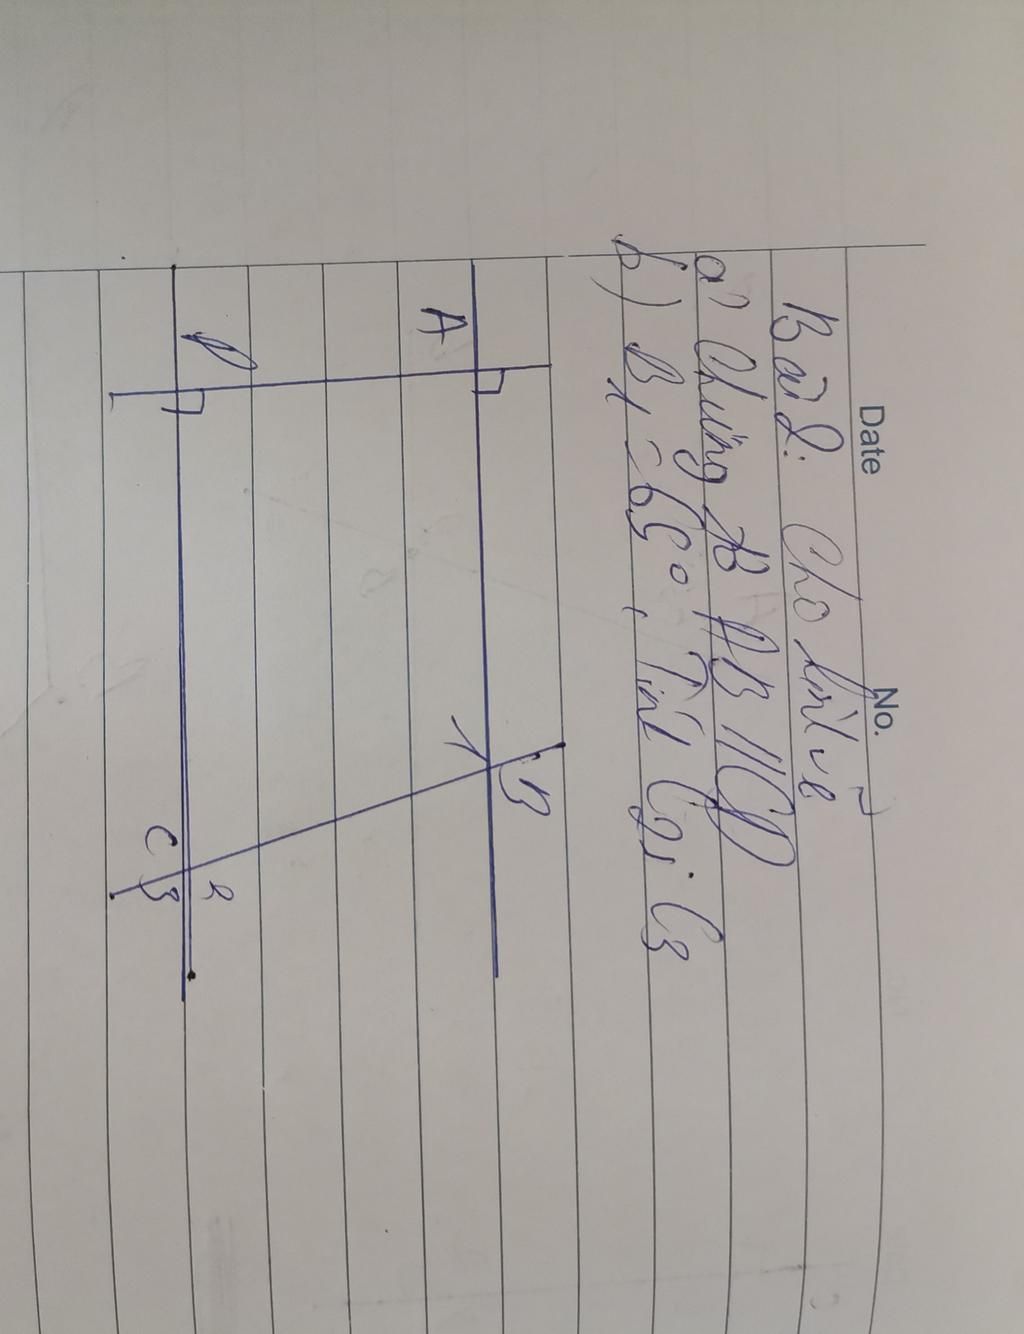 Date No.
Bài 2: Cho hình vẽ
a) Chứng tỏ AB // CD
b) B1 = 65°, Tính C2; C3
A
B
1
D
C
2
3